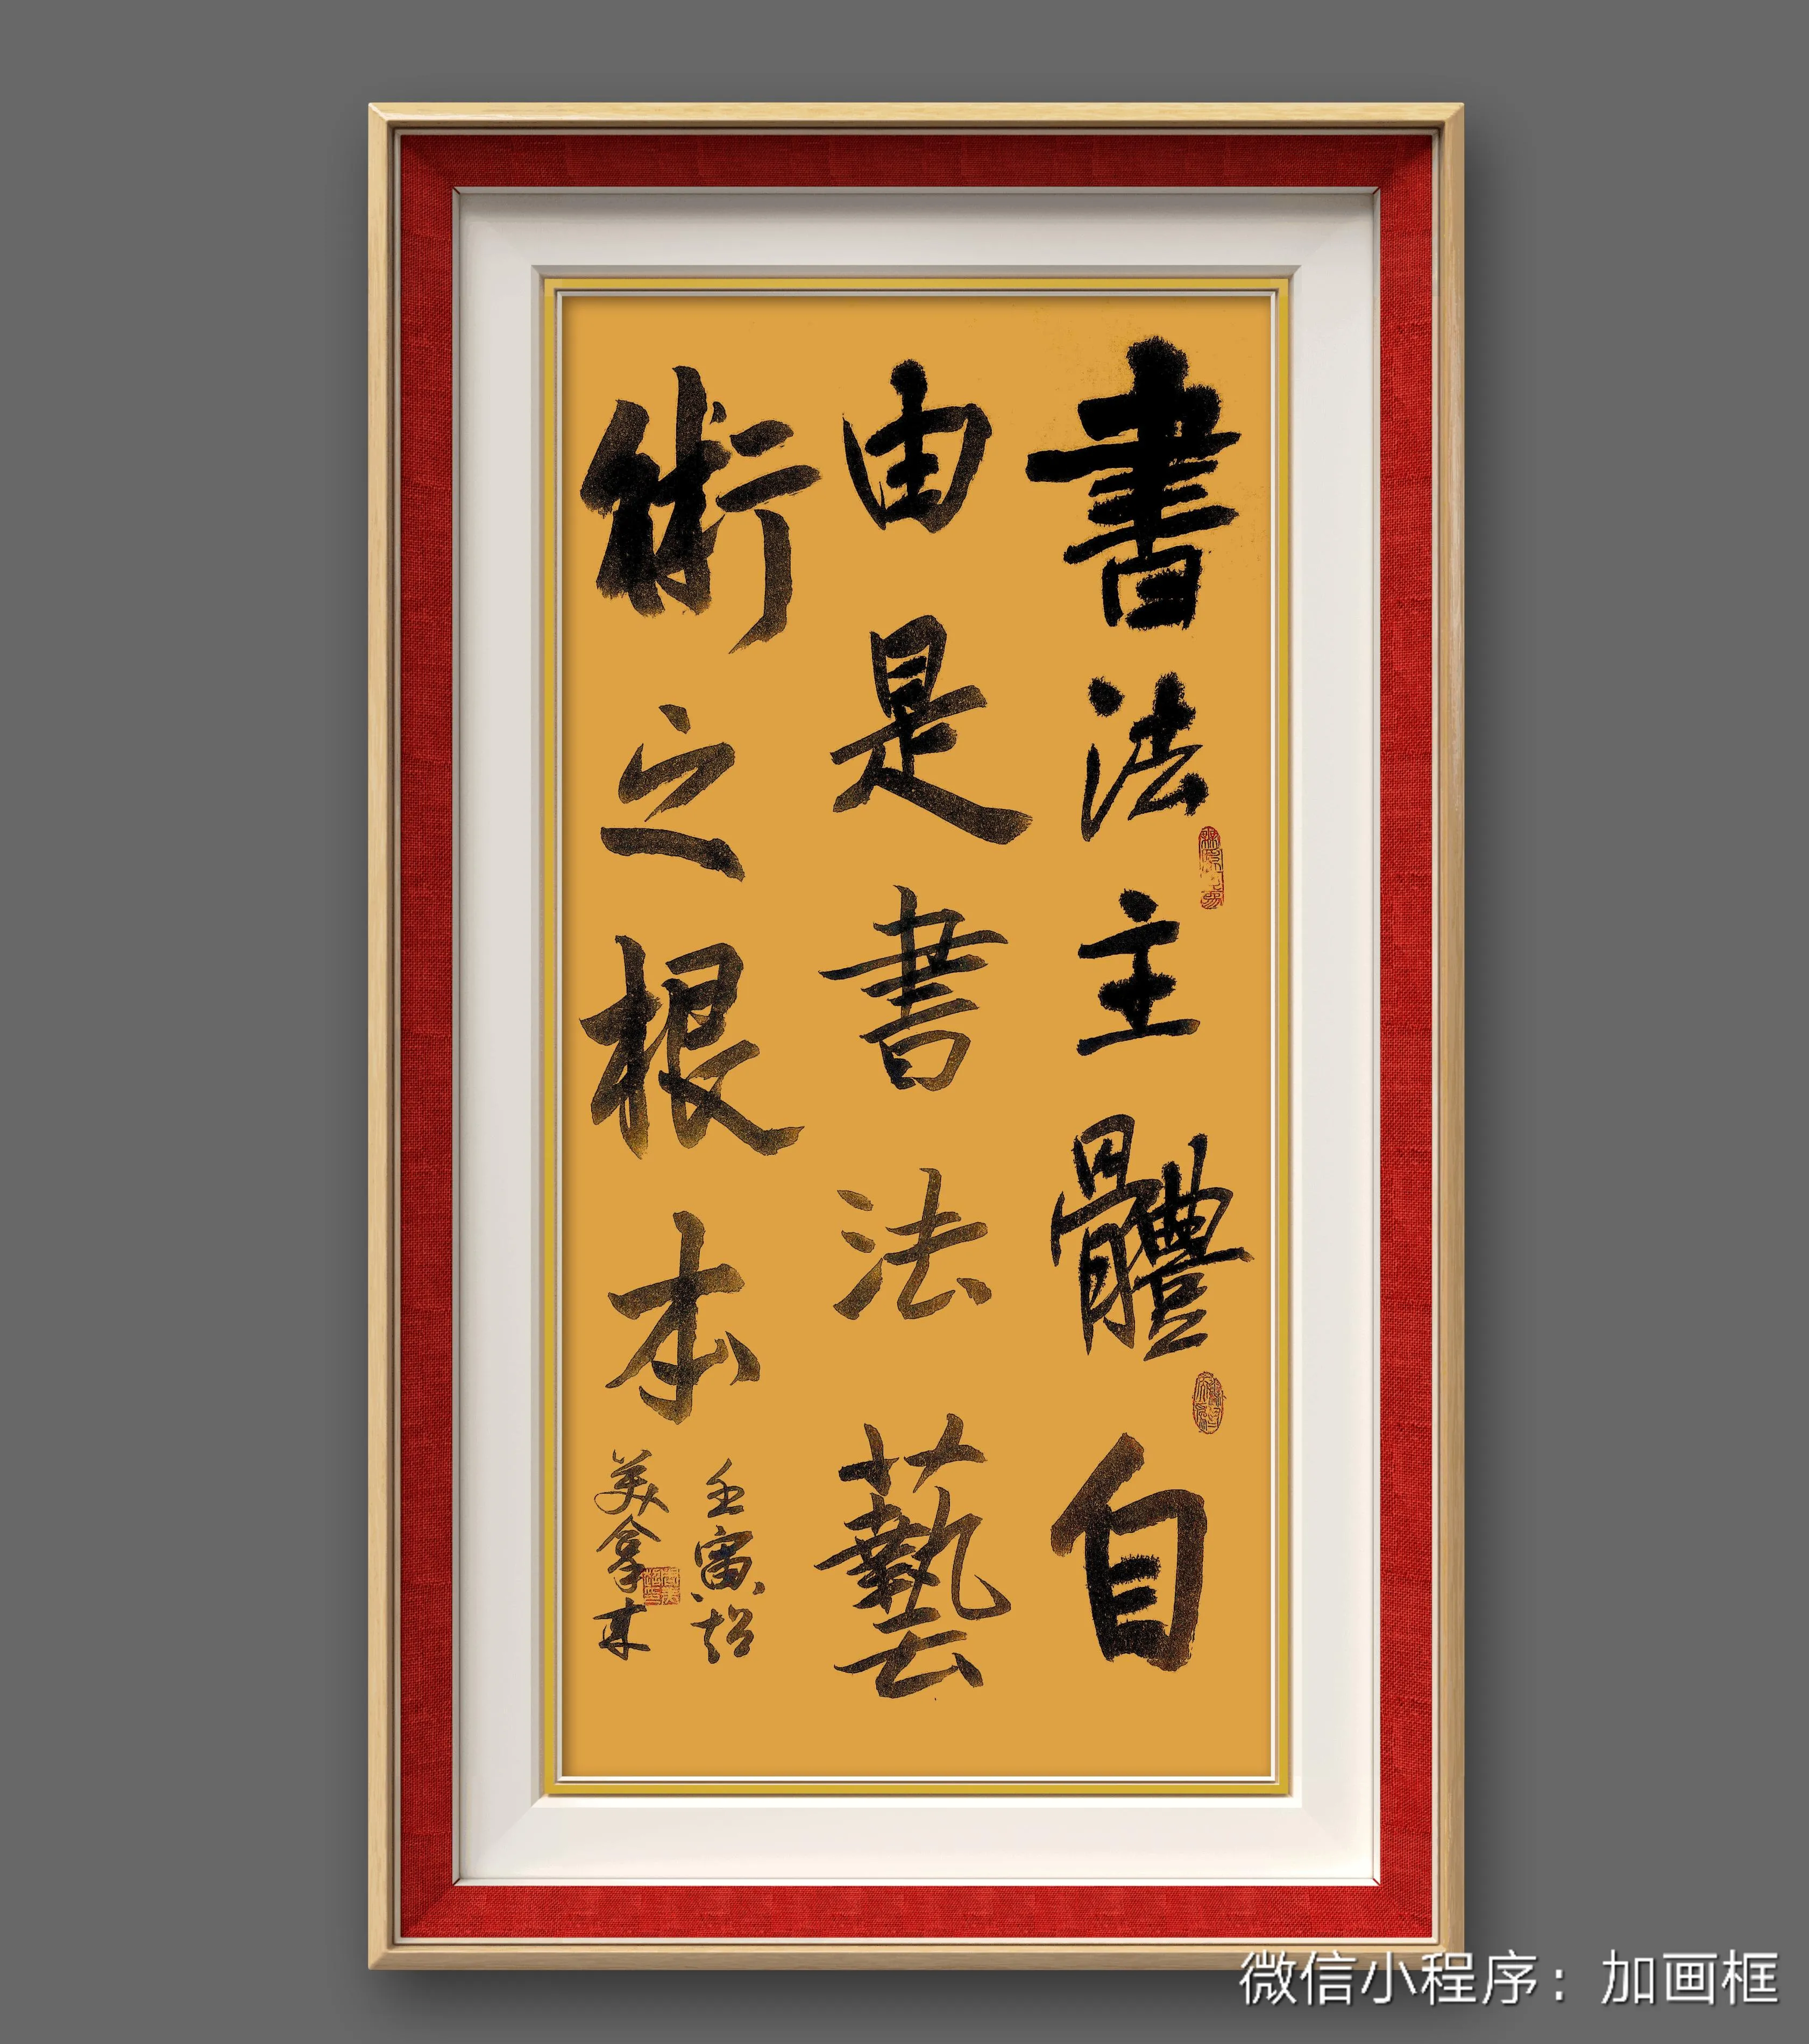 書法主體自
由是書法藝
術之根本
壬寅
美拿
微信小程序：加画框